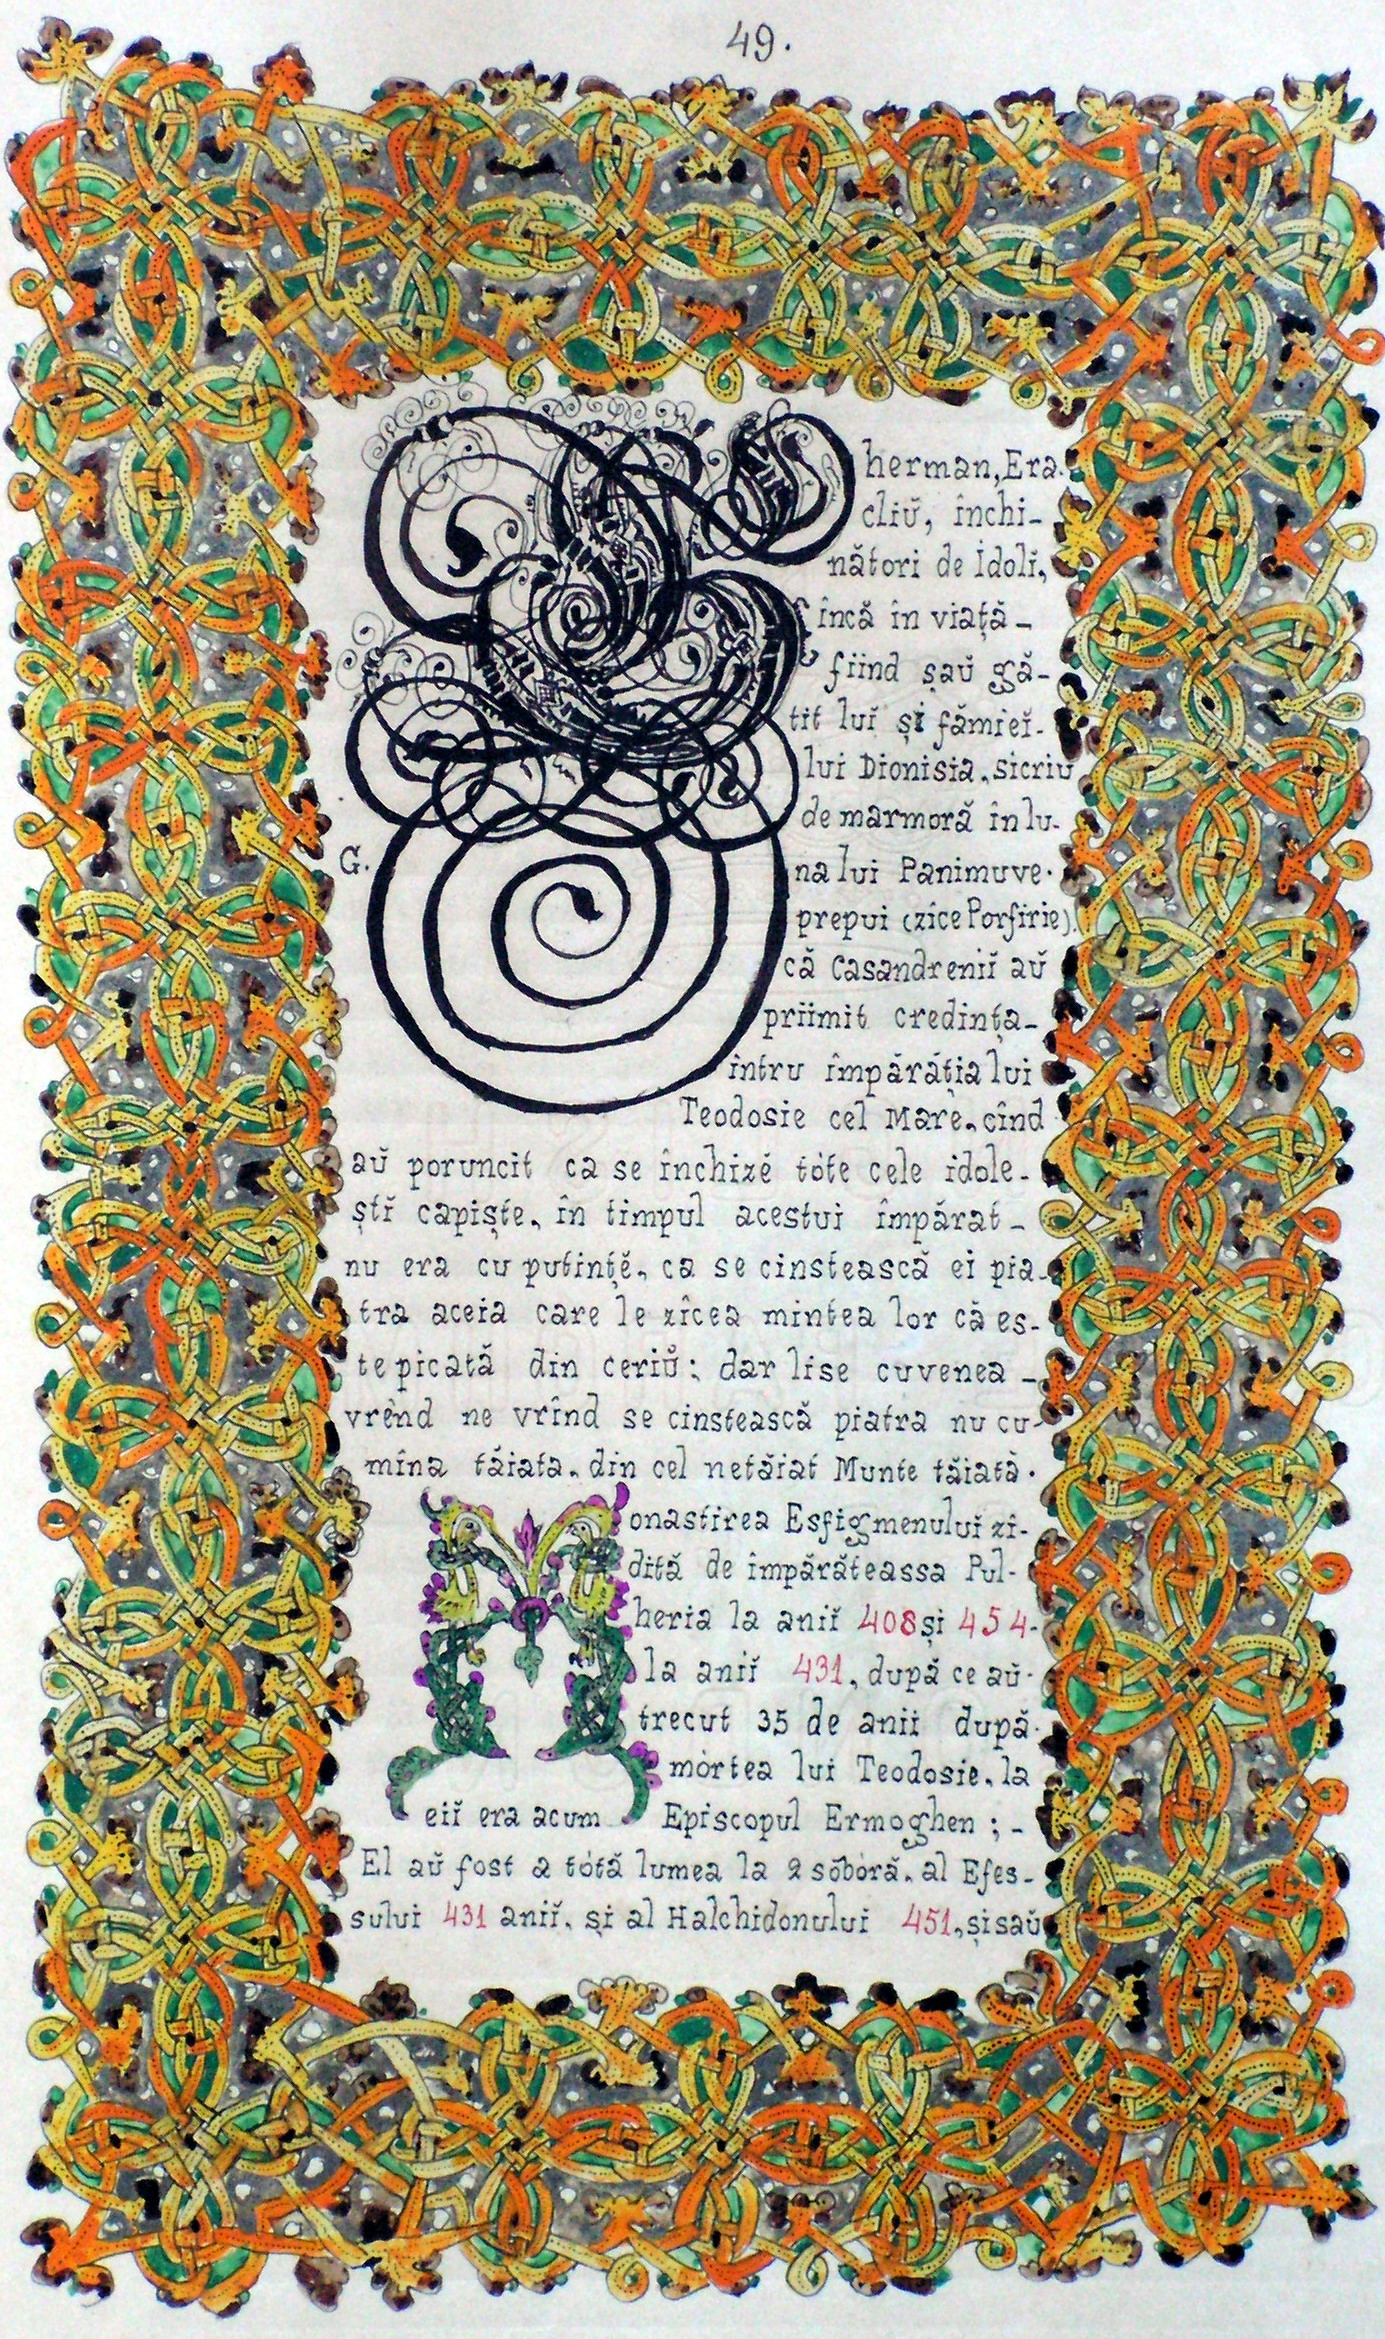 49.
herman, Era.
cliŭ, închi-
nători de Idoli,
încă în viață -
fiind șaŭ gă-
tit luĭ și fămieĭ-
lui Dionisia, sicriu
de marmoră în lu-
G.
na lui Panimuve.
prepui (zîce Porfirie).
că Casandreniĭ aŭ
priimit credința-
întru împărăția lui
Teodosie cel Mare, cînd
aŭ poruncit ca se închizé tóte cele idole-
ștĭ capiște, în timpul acestui împărat -
nu era cu putințĕ, ca se cinstească ei pia-
tra aceia care le zîcea mintea lor că es-
te picată din ceriŭ: dar li se cuvenea -
vrênd ne vrînd se cinstească piatra nu cu-
mîna tăiata, din cel netăiat Munte tăiată.
Monastirea Esfigmenuluĭ zî-
dită de împărăteassa Pul-
heria la aniĭ 408 și 454-
la aniĭ 431, după ce aŭ.
trecut 35 de aniĭ după.
mórtea lui Teodosie, la
eiĭ era acum Episcopul Ermoghen ; -
El aŭ fost a tótă lumea la 2 sŏboră, al Efes-
sului 431 aniĭ, și al Halchidonului 451, și saŭ